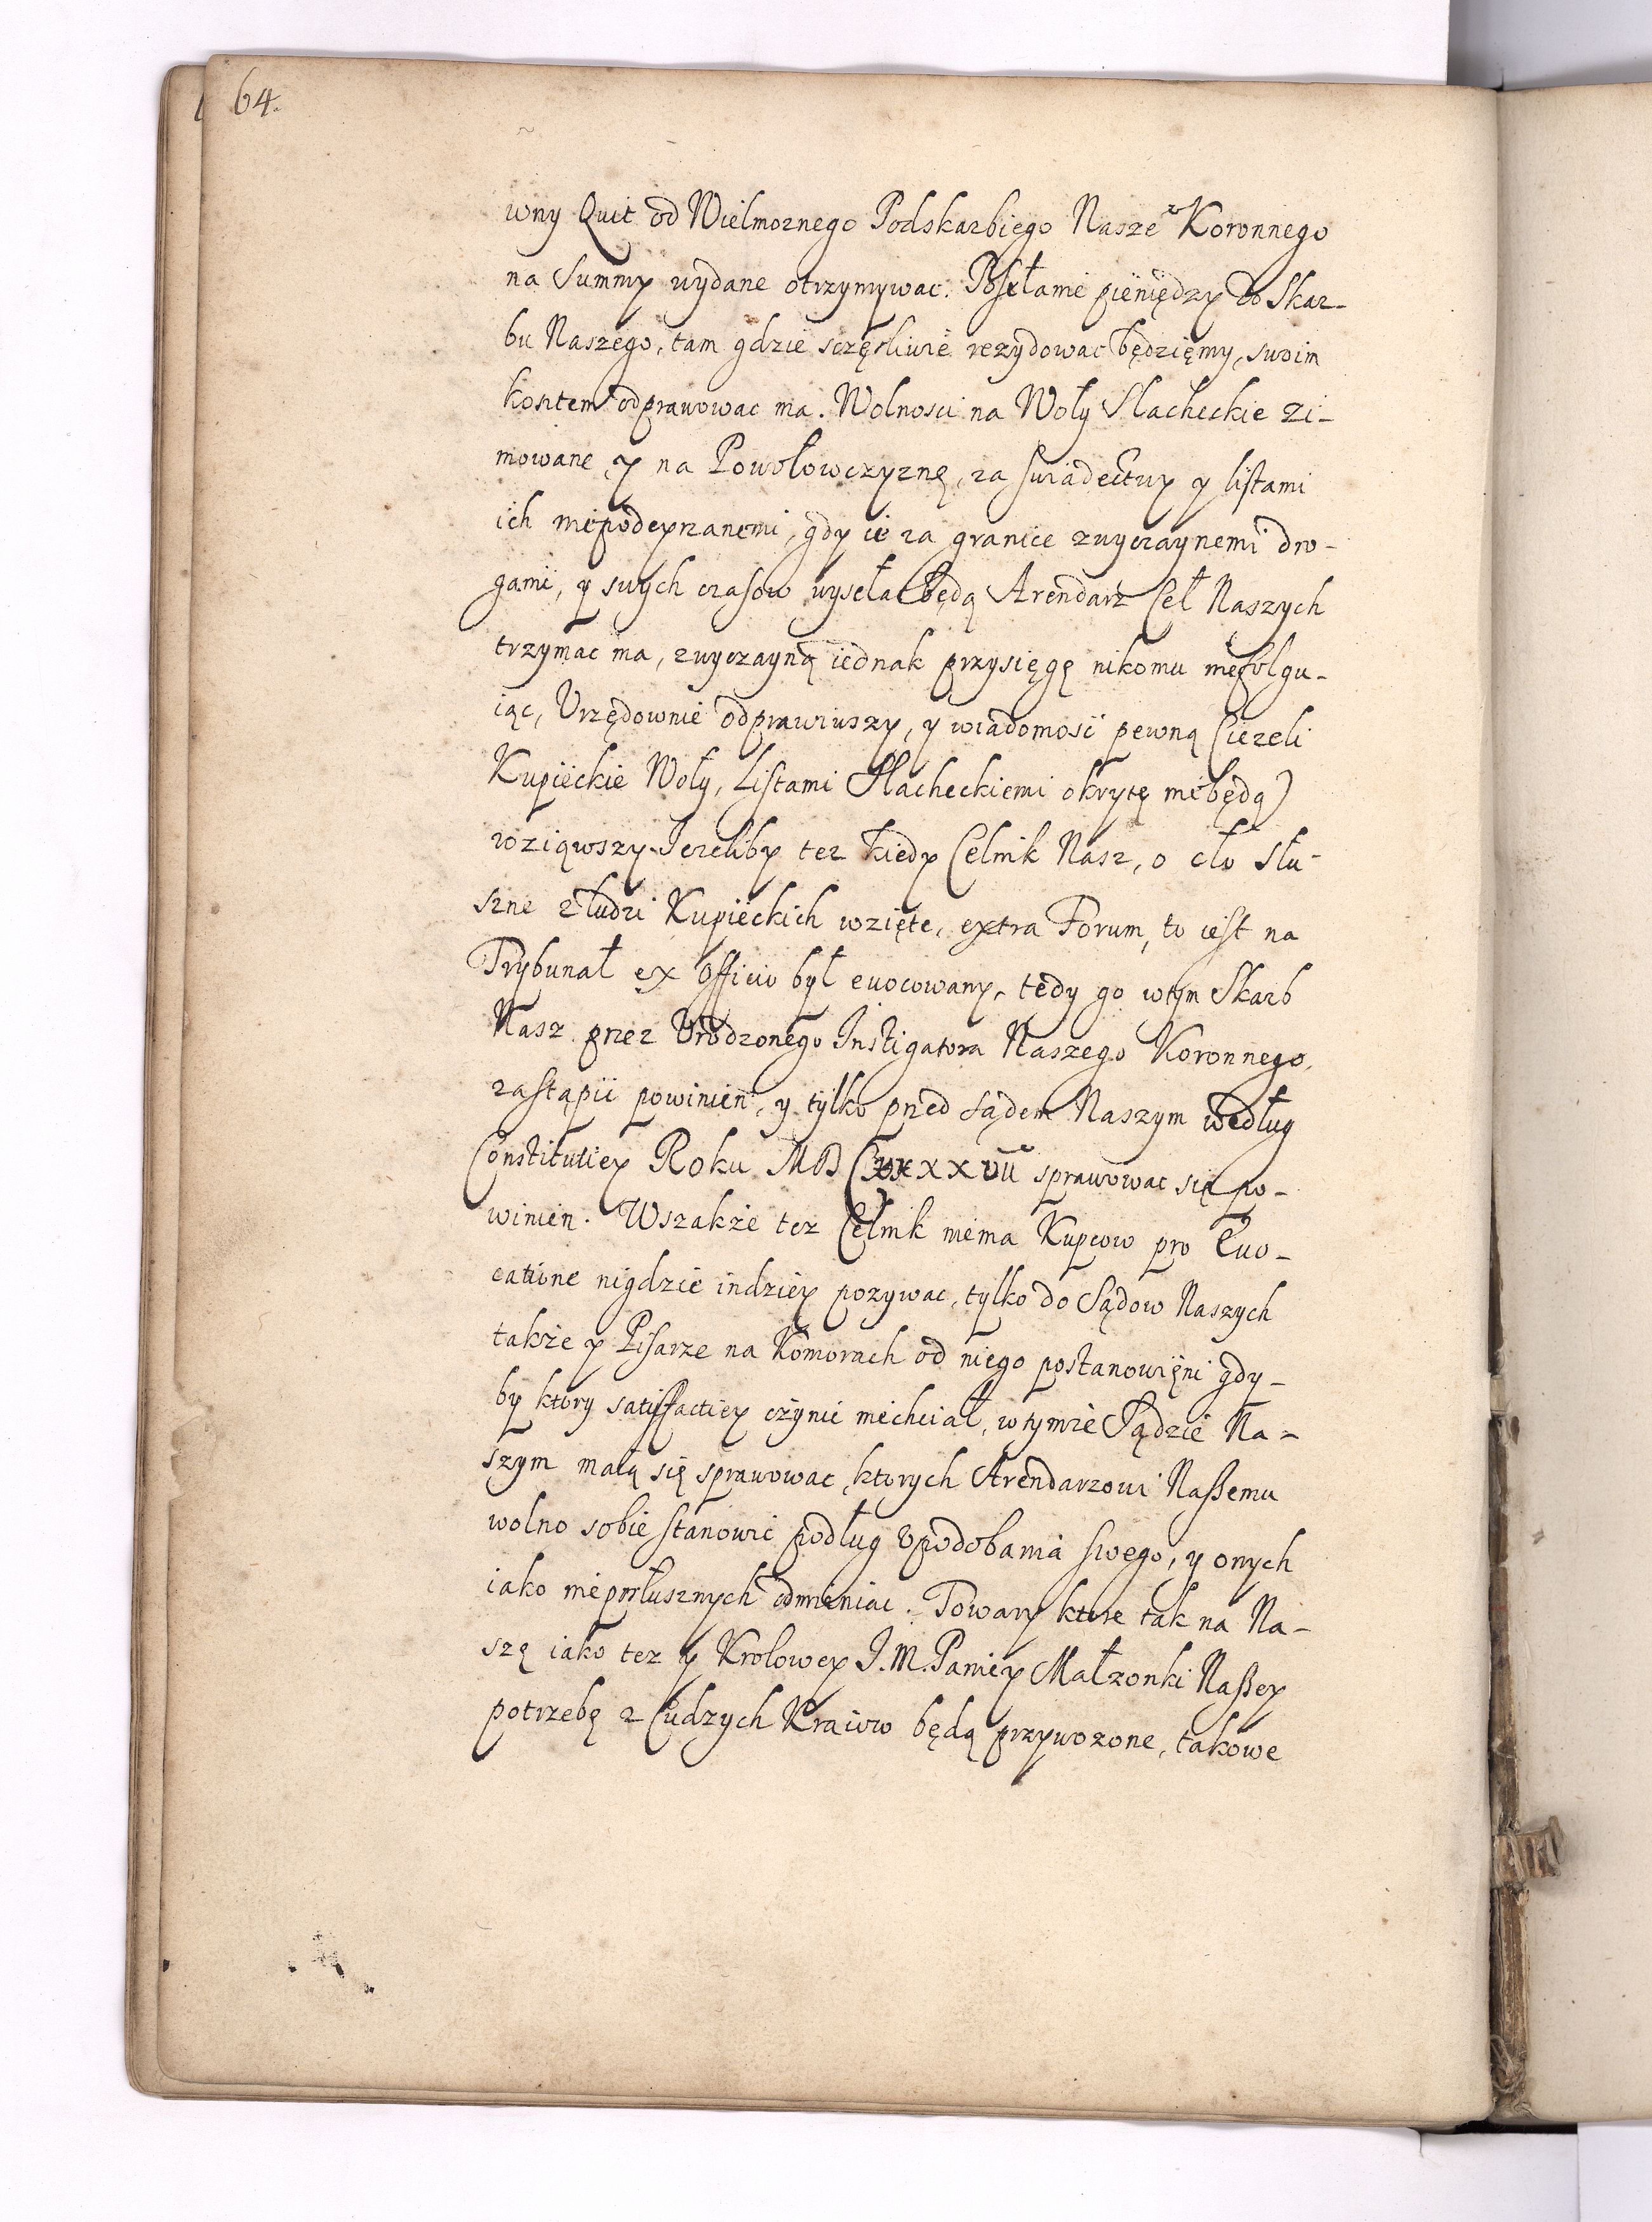 64.
wny Quit od Wielmoznego Podskarbiego Nasze° Koronnego
na Summy wydane otrzymywac. Posełanie pieniędzy do Skar-
bu Naszego, tam gdzie sczęsliwie rezydowac będzięmy, swoim
kosztem odprawowac ma. Wolnosci na Woły Slacheckie zi-
mowane y na Powołowczyznę, za swiadectwy y listami
ich niepodeyrzanemi, gdy ie za granice zwyczaynemi dro-
gami, y swych czasow wysełac będą Arendarz Ceł Naszych
trzymac ma, zwyczayną iednak przysięgę nikomu niefolgu-
iąc, Vrzędownie odprawiwszy, y wiadomosc pewną (iezeli
Kupieckie Woły, Listami Slacheckiemi okrytę niebędą)
wziąwszy. Iezeliby tez kiedy Celnik Nasz, o cło słu-
szne z ludzi Kupieckich wzięte, extra Forum, to iest na
Trybunał ex Officio był evocowany, tedy go wtym Skarb
Nasz przez Vrodzonego Instigatora Naszego Koronnego,
zastąpic powinien, y tylko przed sądem Naszym według
Constitutiey Roku MD sprawowac się po-
winien. Wszakże tez Celnik niema Kupcow pro Evo-
catione nigdzie indziey pozywac, tylko do Sądow Naszych
także y Pisarze na Komorach od niego postanowięni gdy-
by ktory satisfactiey czynic niechciał, wtymze Sądzie Na-
szym maią się sprawowac, ktorych Arendarzowi Nassemu
wolno sobie stanowic podług vpodobania swego, y onych
iako nieposłusznych odmieniac. Towary ktore tak na Na-
szę iako tez y Krolowey I. M. Paniey Małzonki Nassey
potrzebę z Cudzych Kraiow będą przywozone, takowe